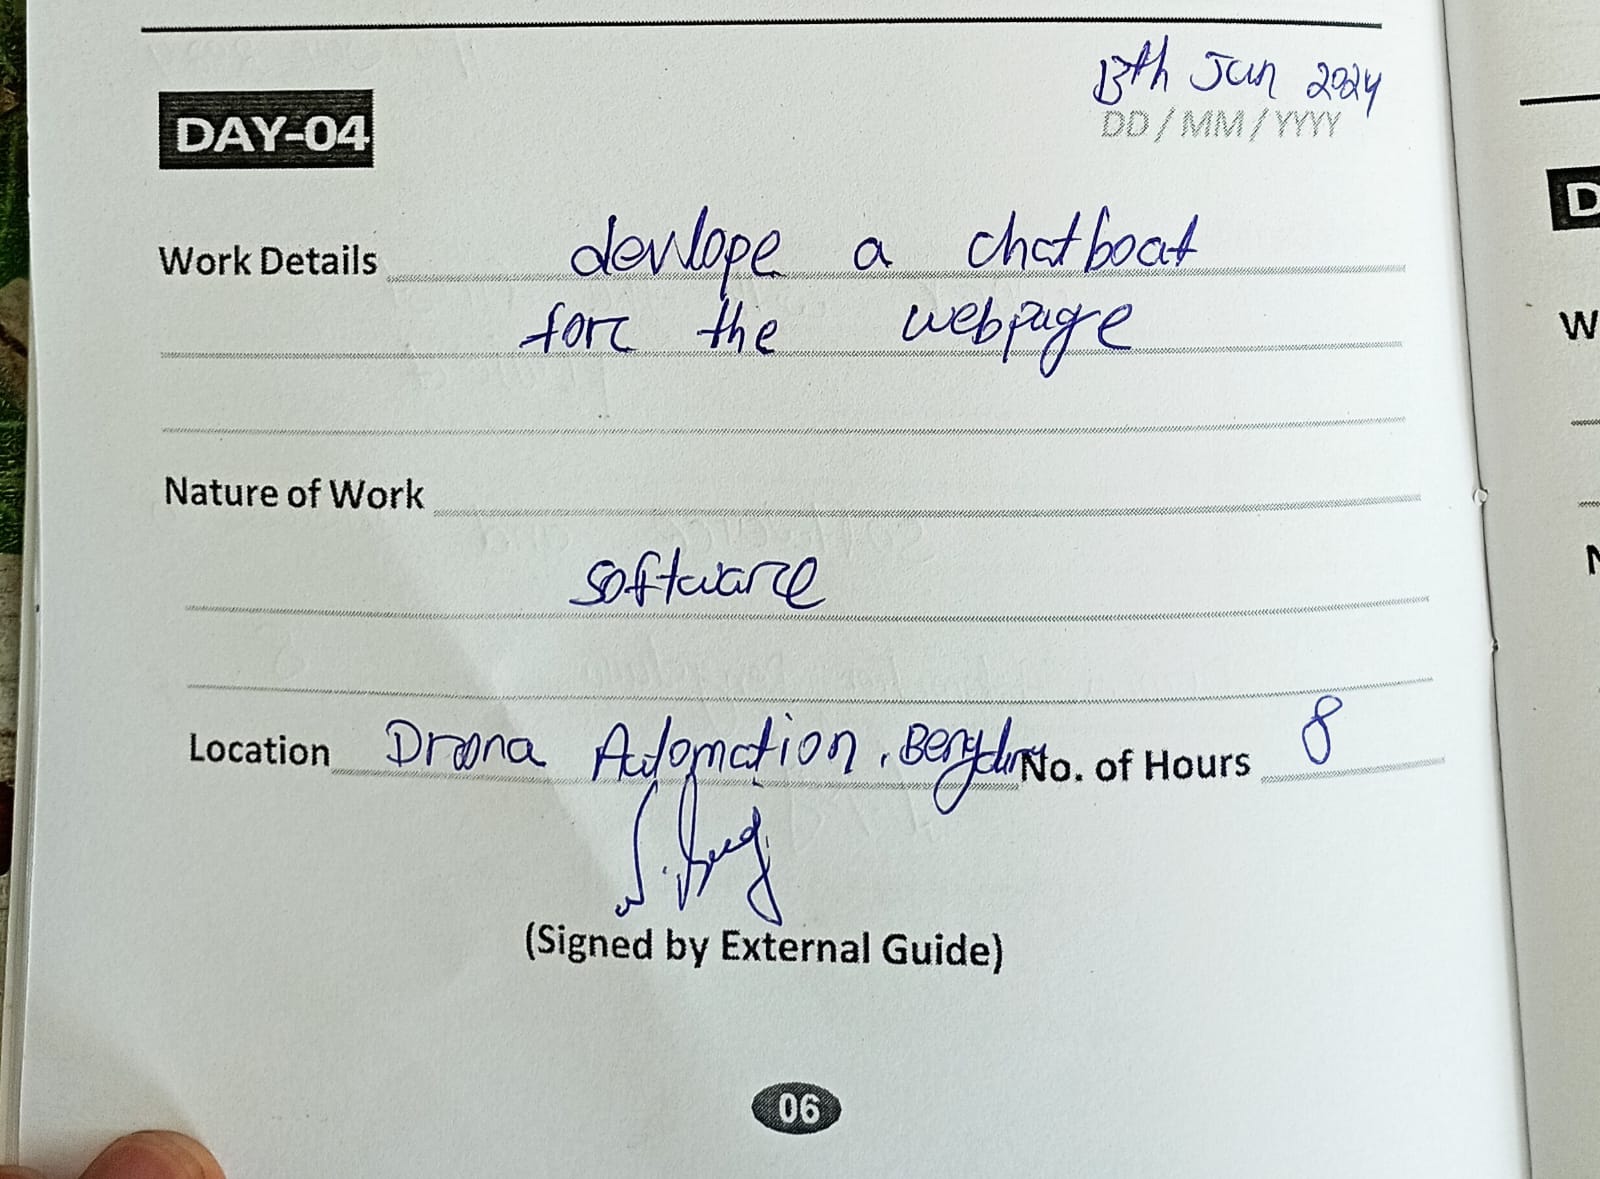 13th Jun 2024
DD / MM / YYYY
DAY-04
Work Details devlope a chatboat
for the webpage
Nature of Work
software
Location Drona Automation, No. of Hours 8
(Signed by External Guide)
06
D
W
N